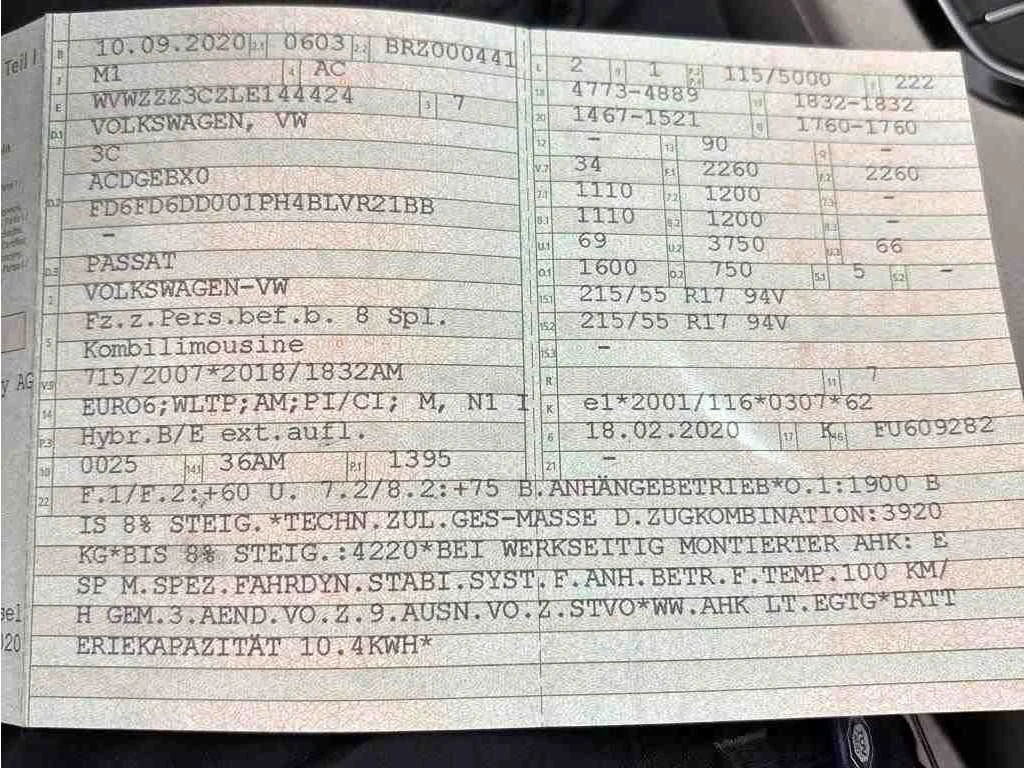 Teil I
B 10.09.2020 2.1 0603 2.2 BRZ000441
J M1 4 AC
E WVWZZZ3CZLE144424 3 7
D.1 VOLKSWAGEN, VW
3C
ACDGEBX0
D.2 FD6FD6DD001PH4BLVR21BB
–
D.3 PASSAT
2 VOLKSWAGEN-VW
Fz.z.Pers.bef.b. 8 Spl.
5 Kombilimousine
V.9 715/2007*2018/1832AM
14 EURO6;WLTP;AM;PI/CI; M, N1 I
P.3 Hybr.B/E ext.aufl.
10 0025 14.1 36AM P.1 1395
L 2 9 1 P.2 P.4 115/5000 T 222
18 4773-4889 19 1832-1832
20 1467-1521 G 1760-1760
12 – 13 90 Q –
V.7 34 F.1 2260 F.2 2260
7.1 1110 7.2 1200 7.3 –
8.1 1110 8.2 1200 8.3 –
U.1 69 U.2 3750 U.3 66
O.1 1600 O.2 750 S.1 5 S.2 –
15.1 215/55 R17 94V
15.2 215/55 R17 94V
15.3 –
R 11 7
K e1*2001/116*0307*62
6 18.02.2020 17 K 16 FU609282
21 –
22 F.1/F.2:+60 U. 7.2/8.2:+75 B.ANHÄNGEBETRIEB*O.1:1900 B
IS 8% STEIG.*TECHN.ZUL.GES-MASSE D.ZUGKOMBINATION:3920
KG*BIS 8% STEIG.:4220*BEI WERKSEITIG MONTIERTER AHK: E
SP M.SPEZ.FAHRDYN.STABI.SYST.F.ANH.BETR.F.TEMP.100 KM/
H GEM.3.AEND.VO.Z.9.AUSN.VO.Z.STVO*WW.AHK LT.EGTG*BATT
ERIEKAPAZITÄT 10.4KWH*
y AG
sel
020